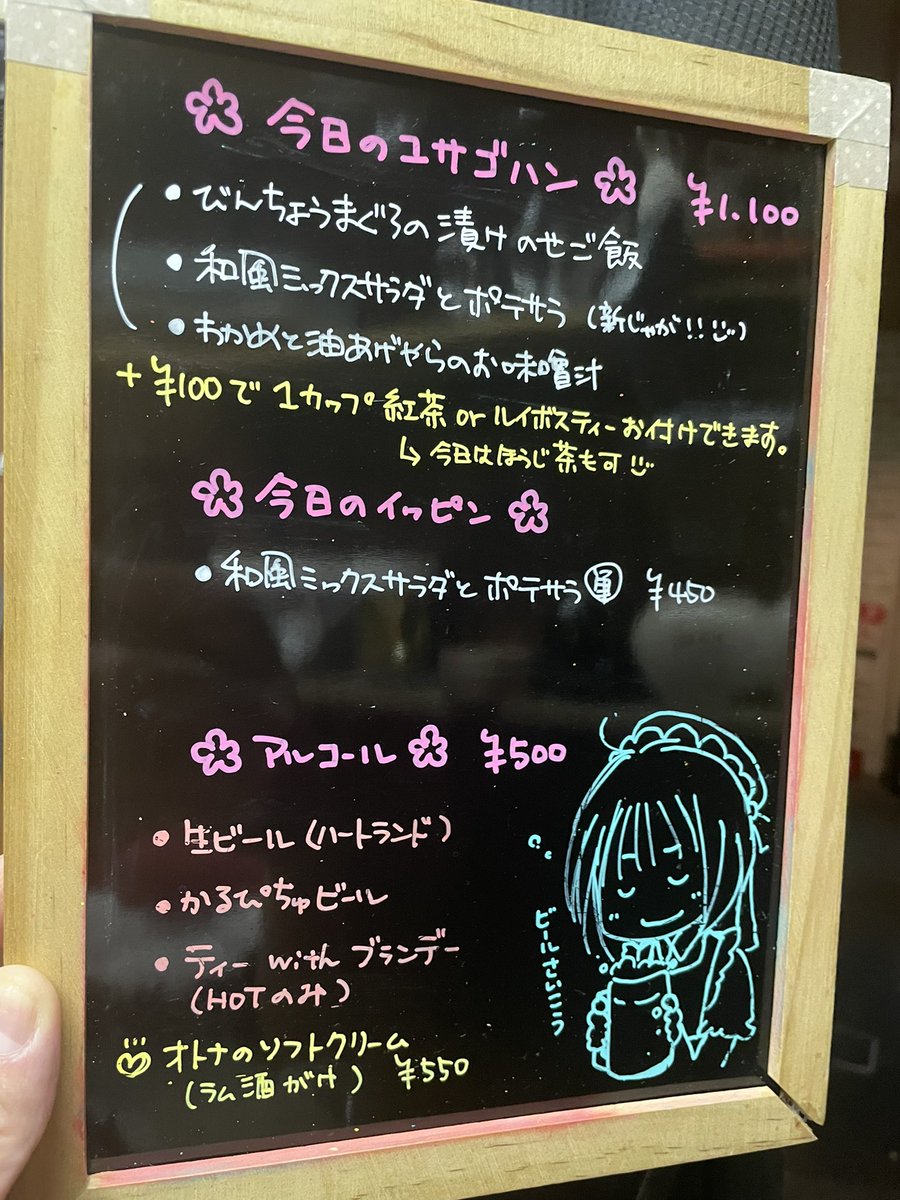 今日のユサゴハン ¥1.100
・びんちょうまぐろの漬けのせご飯
・和風ミックスサラダとポテサラ (新じゃが!!)
・わかめと油あげやらのお味噌汁
+¥100で1カップ紅茶orルイボスティーお付けできます。
↳今日はほうじ茶も可
今日のイッピン
・和風ミックスサラダとポテサラ ¥450
アルコール ¥500
・生ビール(ハートランド)
・かるぴちゅビール
・ティー with ブランデー
(HOTのみ)
オトナのソフトクリーム
(ラム酒がけ) ¥550